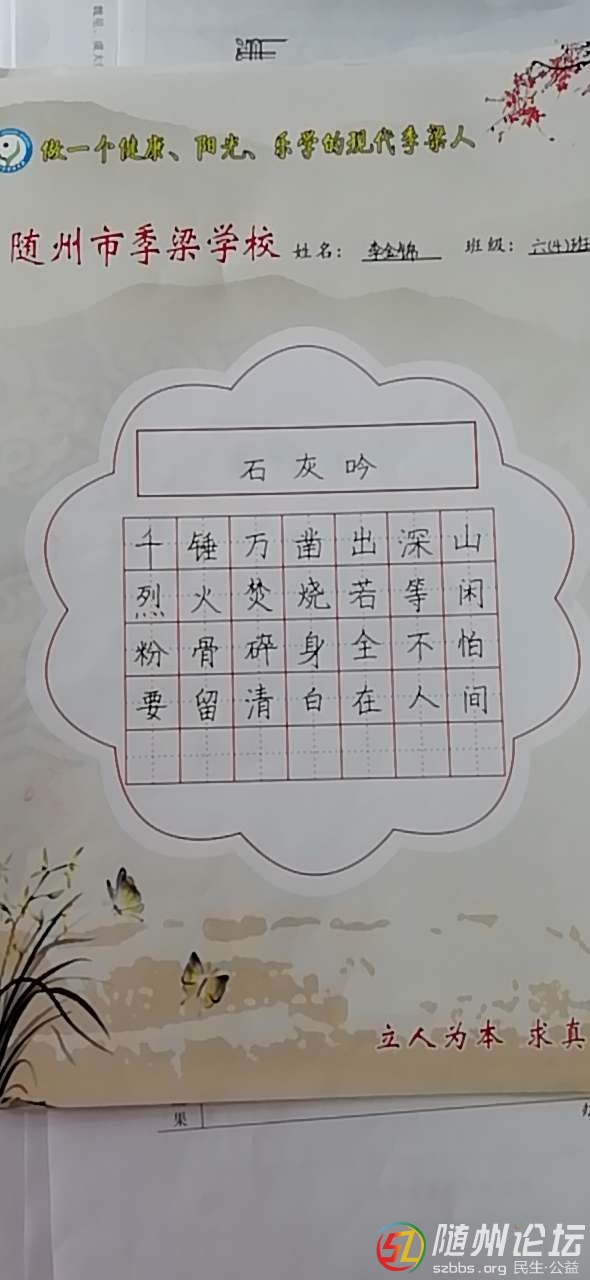 做一个健康、阳光、乐学的现代季梁人
随州市季梁学校 姓名：李金锦 班级：六(4)班
石灰吟
千锤万凿出深山
烈火焚烧若等闲
粉骨碎身全不怕
要留清白在人间
立人为本 求真
果
随州论坛
szbbs.org 民生·公益